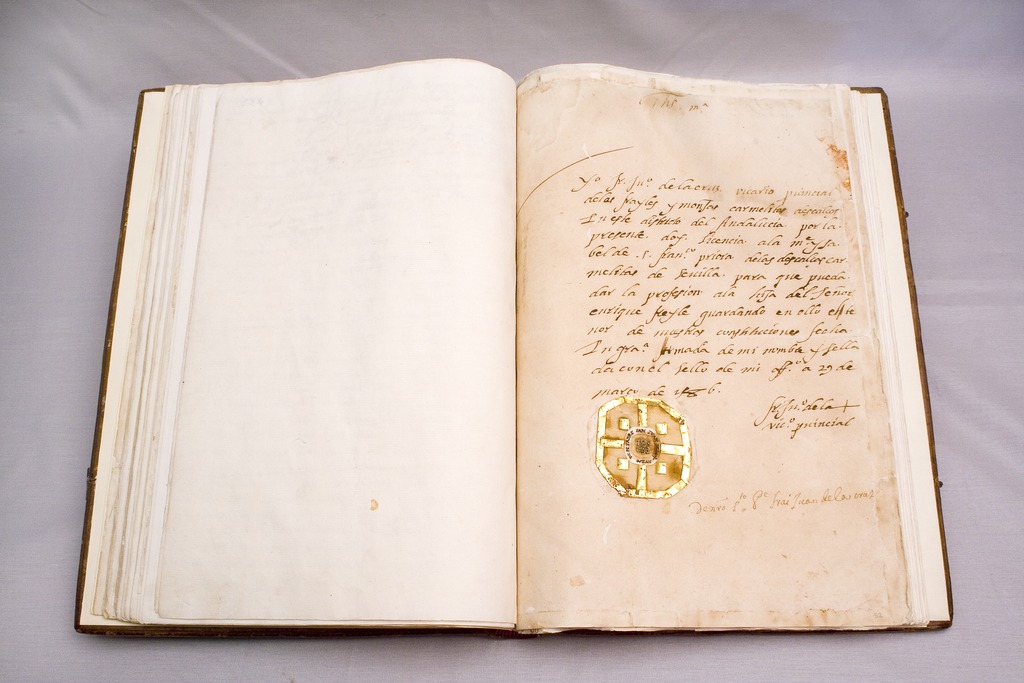 Jhs mᵃ
Yo fr. Juº. de la cruz vicario provincial
de los frayles y monjas carmelitas descalços
En este distrito del Andalucia por la
presente. doy. licencia a la mᵉ ysa
bel de .s. franᶜᵒ priora de las descalças car
melitas de sevilla. para que pueda
dar la profesion a la hija del señor
enrique freyle guardando en ello el te
nor de nuestras constituciones fecha
En graᵃ firmada de mi nombre y sella
da con el sello de mi offº a 29 de
março de 1586.
fr. Juº. de la +
vicº provincial
De nro Sᵗᵒ Pᵉ frai Juan de la cruz